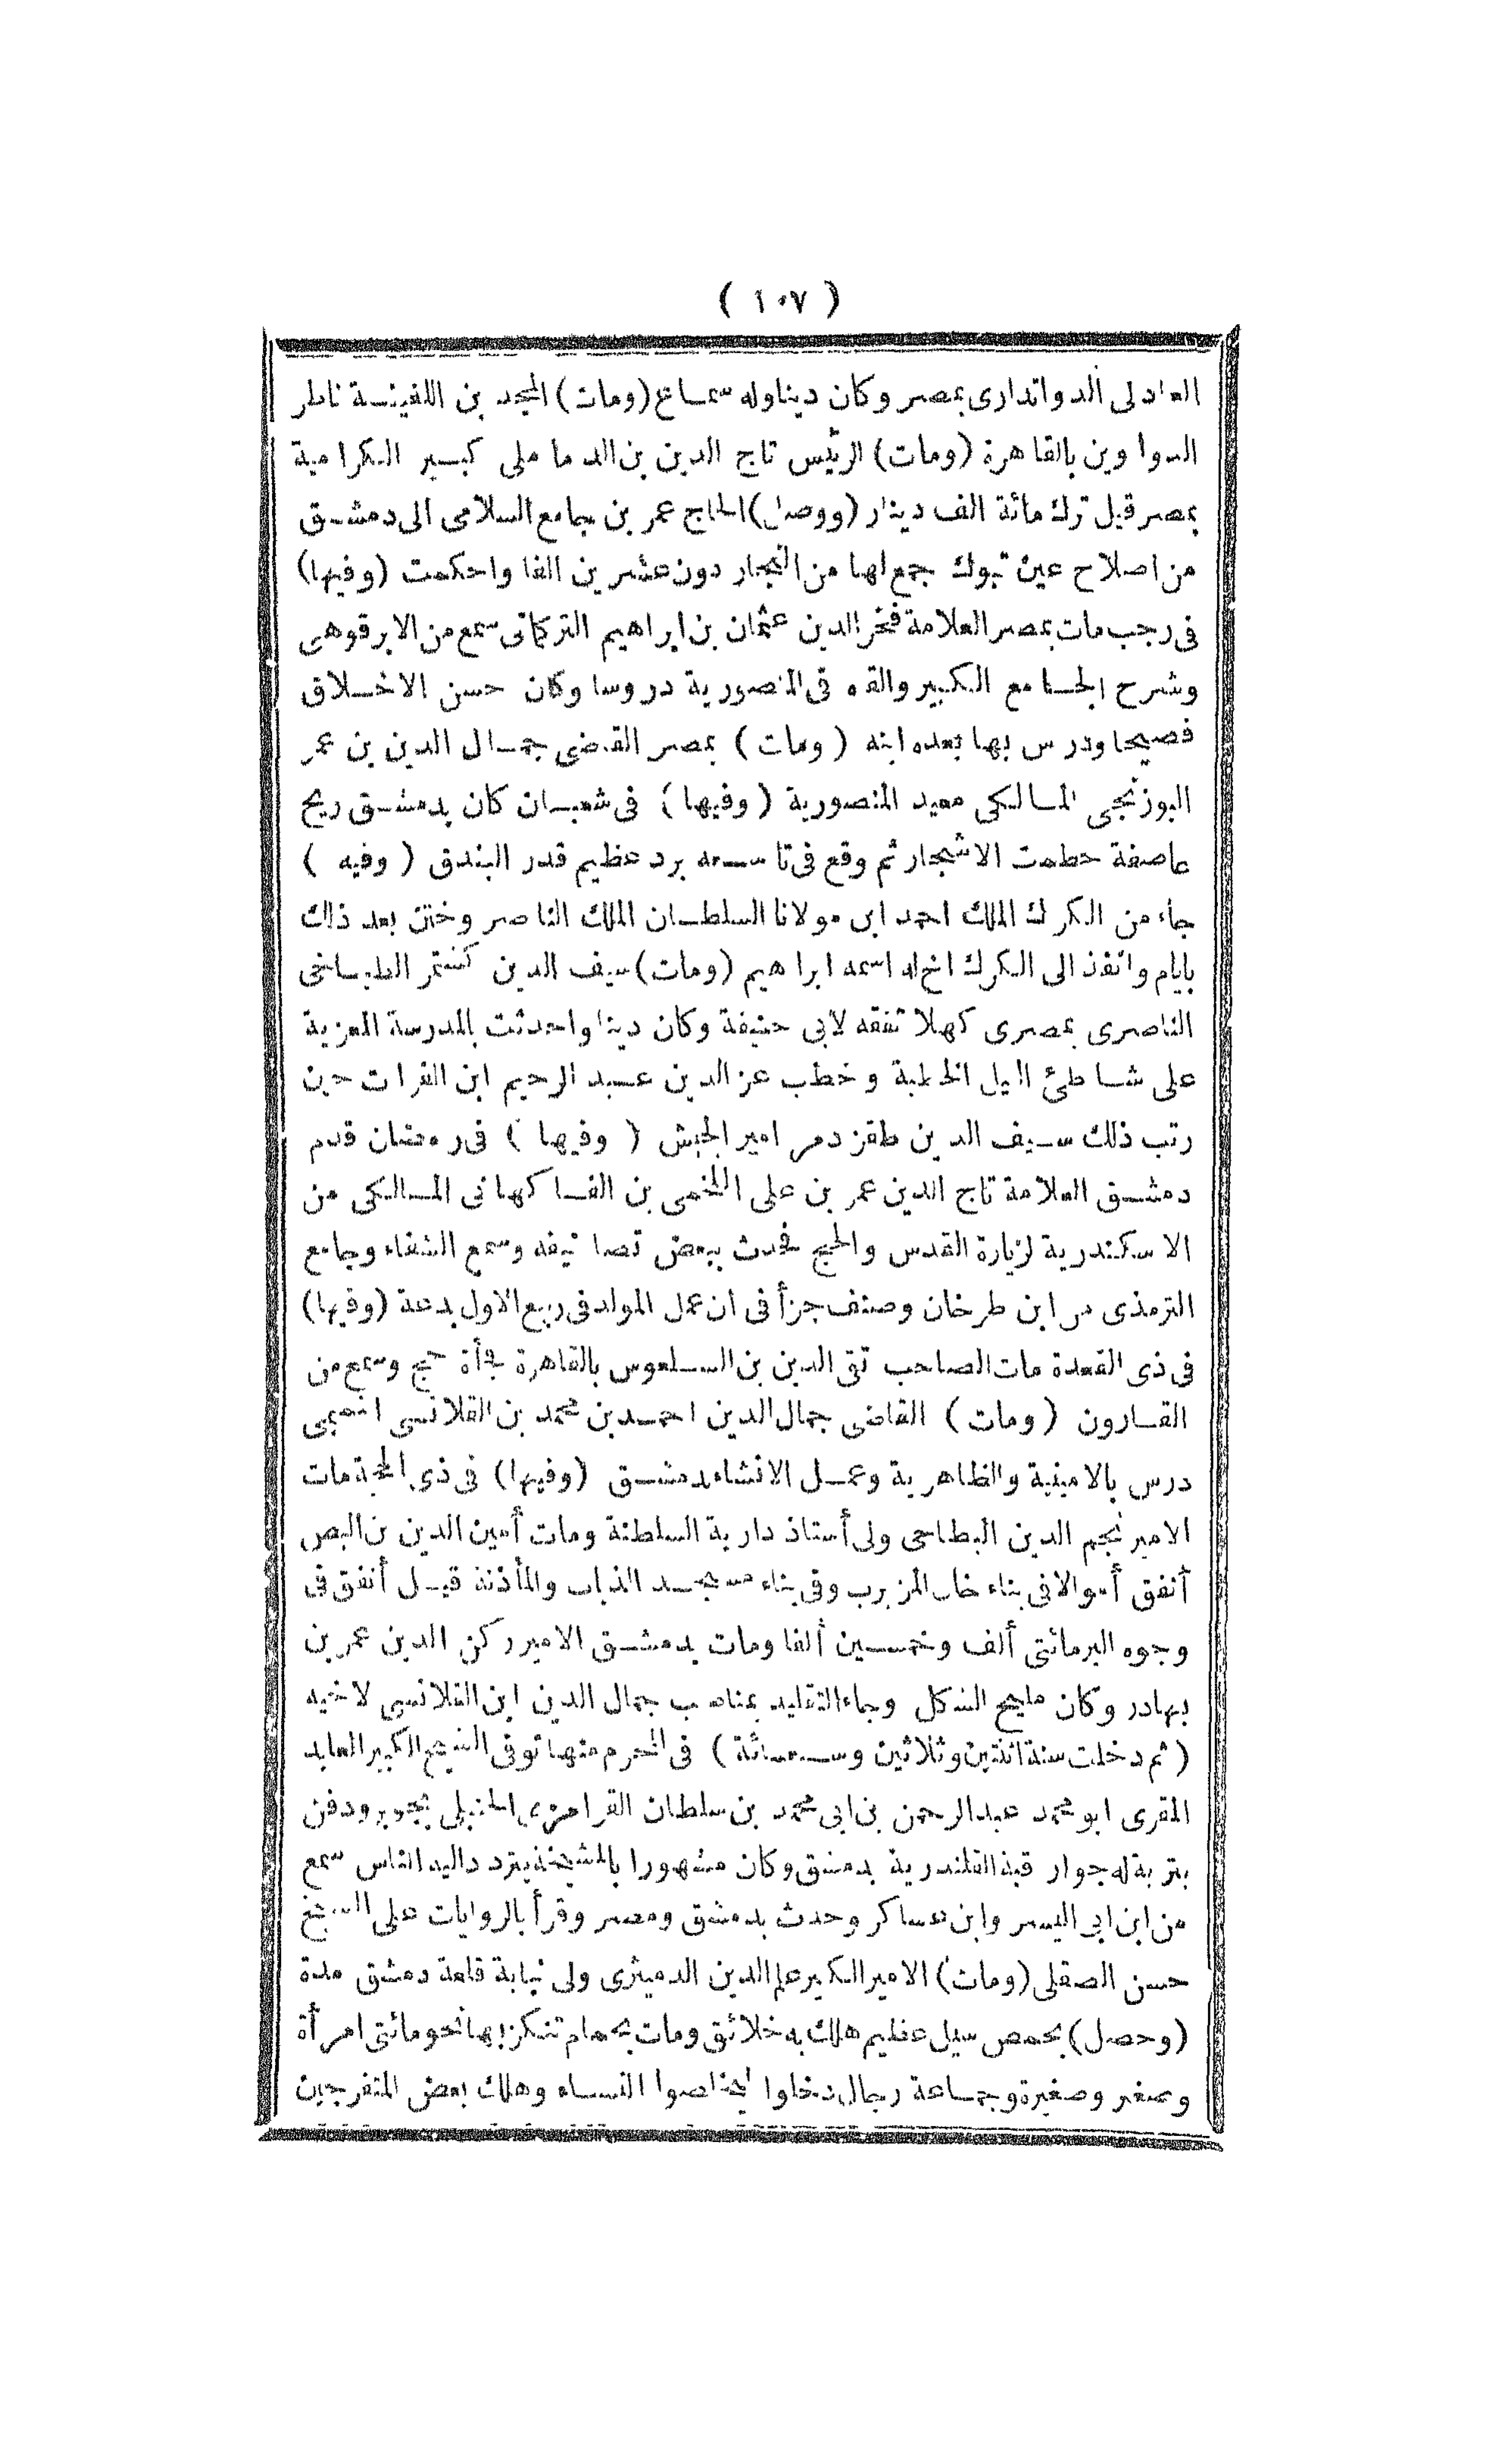 ( ١٠٧ )
العادلى الدواتدارى بمصر وكان دينا وله سماع (ومات) المجد بن اللفينة ناظر
الدواوين بالقاهرة (ومات) الرئيس تاج الدين بن الدماملى كبير الكرامية
بمصر قيل ترك مائة الف دينار (ووصل) الحاج عمر بن جامع السلامى الى دمشق
من اصلاح عين تبوك جمع لها من التجار دون عشرين الفا واحكمت (وفيها)
فى رجب مات بمصر العلامة فخر الدين عثمان بن ابراهيم التركمانى سمع من الابرقوهى
وشرح الجامع الكبير والقاه فى المنصورية دروسا وكان حسن الاخلاق
فصيحا ودرس بها بعده ابنه (ومات) بمصر القاضى جمال الدين بن عمر
البوزنجى المالكى معيد المنصورية (وفيها) فى شعبان كان بدمشق ريح
عاصفة حطمت الاشجار ثم وقع فى تاسعه برد عظيم قدر البندق (وفيه)
جاء من الكرك الملك احمد ابن مولانا السلطان الملك الناصر وختن بعد ذلك
بايام وانفذ الى الكرك اخ له اسمه ابراهيم (ومات) سيف الدين كشتمر الطباخى
الناصرى بمصرى كهلا تفقه لابى حنيفة وكان دينا واحدثت بالمدرسة المعزية
على شاطئ النيل الخطبة وخطب عز الدين عبد الرحيم ابن الفرات حين
رتب ذلك سيف الدين طقزدمر امير الجيش (وفيها) فى رمضان قدم
دمشق العلامة تاج الدين عمر بن على اللخمى بن الفاكهانى المالكى من
الاسكندرية لزيارة القدس والحج فحدث ببعض تصانيفه وسمع الشفاء وجامع
الترمذى من ابن طرخان وصنف جزأ فى ان عمل المولد فى ربيع الاول بدعة (وفيها)
فى ذى القعدة مات الصاحب تقى الدين بن السلعوس بالقاهرة فجأة حج وسمع من
القارون (ومات) القاضى جمال الدين احمد بن محمد بن القلانسى التميمى
درس بالامينية والظاهرية وعمل الانشاء بدمشق (وفيها) فى ذى الحجة مات
الامير نجم الدين البطاحى ولى أستاذ دارية السلطنة ومات أمين الدين بن البص
أنفق أموالا فى بناء خان المزيرب وفى بناء مسجد الذباب والمأذنة قيل أنفق فى
وجوه البر مائتى ألف وخمسين ألفا ومات بدمشق الامير ركن الدين عمر بن
بهادر وكان مليح الشكل وجاء التقليد بمناصب جمال الدين ابن القلانسى لاخيه
(ثم دخلت سنة اثنتين وثلاثين وسبعمائة) فى المحرم منها توفى الشيخ الكبير العابد
المقرى ابو محمد عبد الرحمن بن ابى محمد بن سلطان القرامزى الحنبلى بجوبر ودفن
بتربة له جوار قبة القلندرية بدمشق وكان مشهورا بالمشيخة يتردد اليه الناس سمع
من ابن ابى اليسر وابن عساكر وحدث بدمشق ومصر وقرأ بالروايات على الشيخ
حسن الصقلى (ومات) الامير الكبير علم الدين الدميثرى ولى نيابة قلعة دمشق مدة
(وحصل) بحمص سيل عظيم هلك به خلائق ومات بحمام تنكز بها نحو مائتى امرأة
وصغير وصغيرة وجماعة رجال دخلوا ليخلصوا النساء وهلك بعض المتفرجين